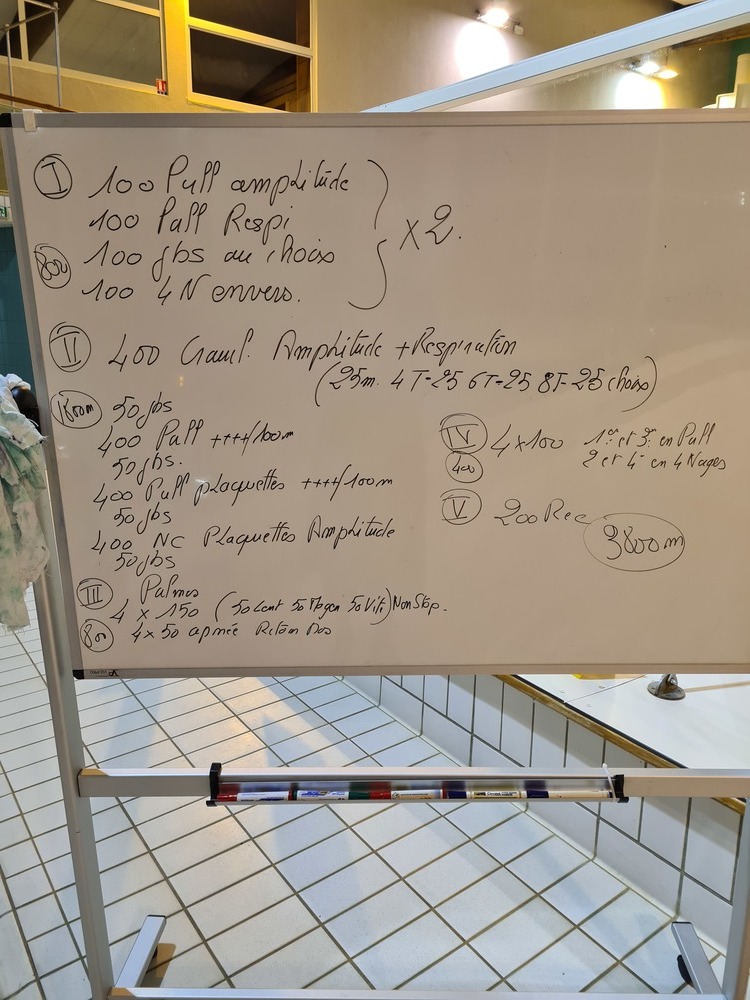 I 100 Pull amplitude
100 Pull Respi
800 100 jbs au choix
100 4N envers.
x2.
II 400 Crawl. Amplitude + Respiration
(25m. 4T-25 6T-25 8T-25 choix)
1800m 50 jbs
400 Pull ++++/100m
50 jbs.
400 Pull plaquettes +++/100m
50 jbs
400 NC Plaquettes Amplitude
50 jbs
III Palmes
4 x 150 (50 Lent 50 Moyen 50 Vite) Non Stop.
800 4x50 apnée Retour Dos
IV 4x100 1er et 3e en Pull
400 2 et 4e en 4 Nages
V 200 Rec
3800m